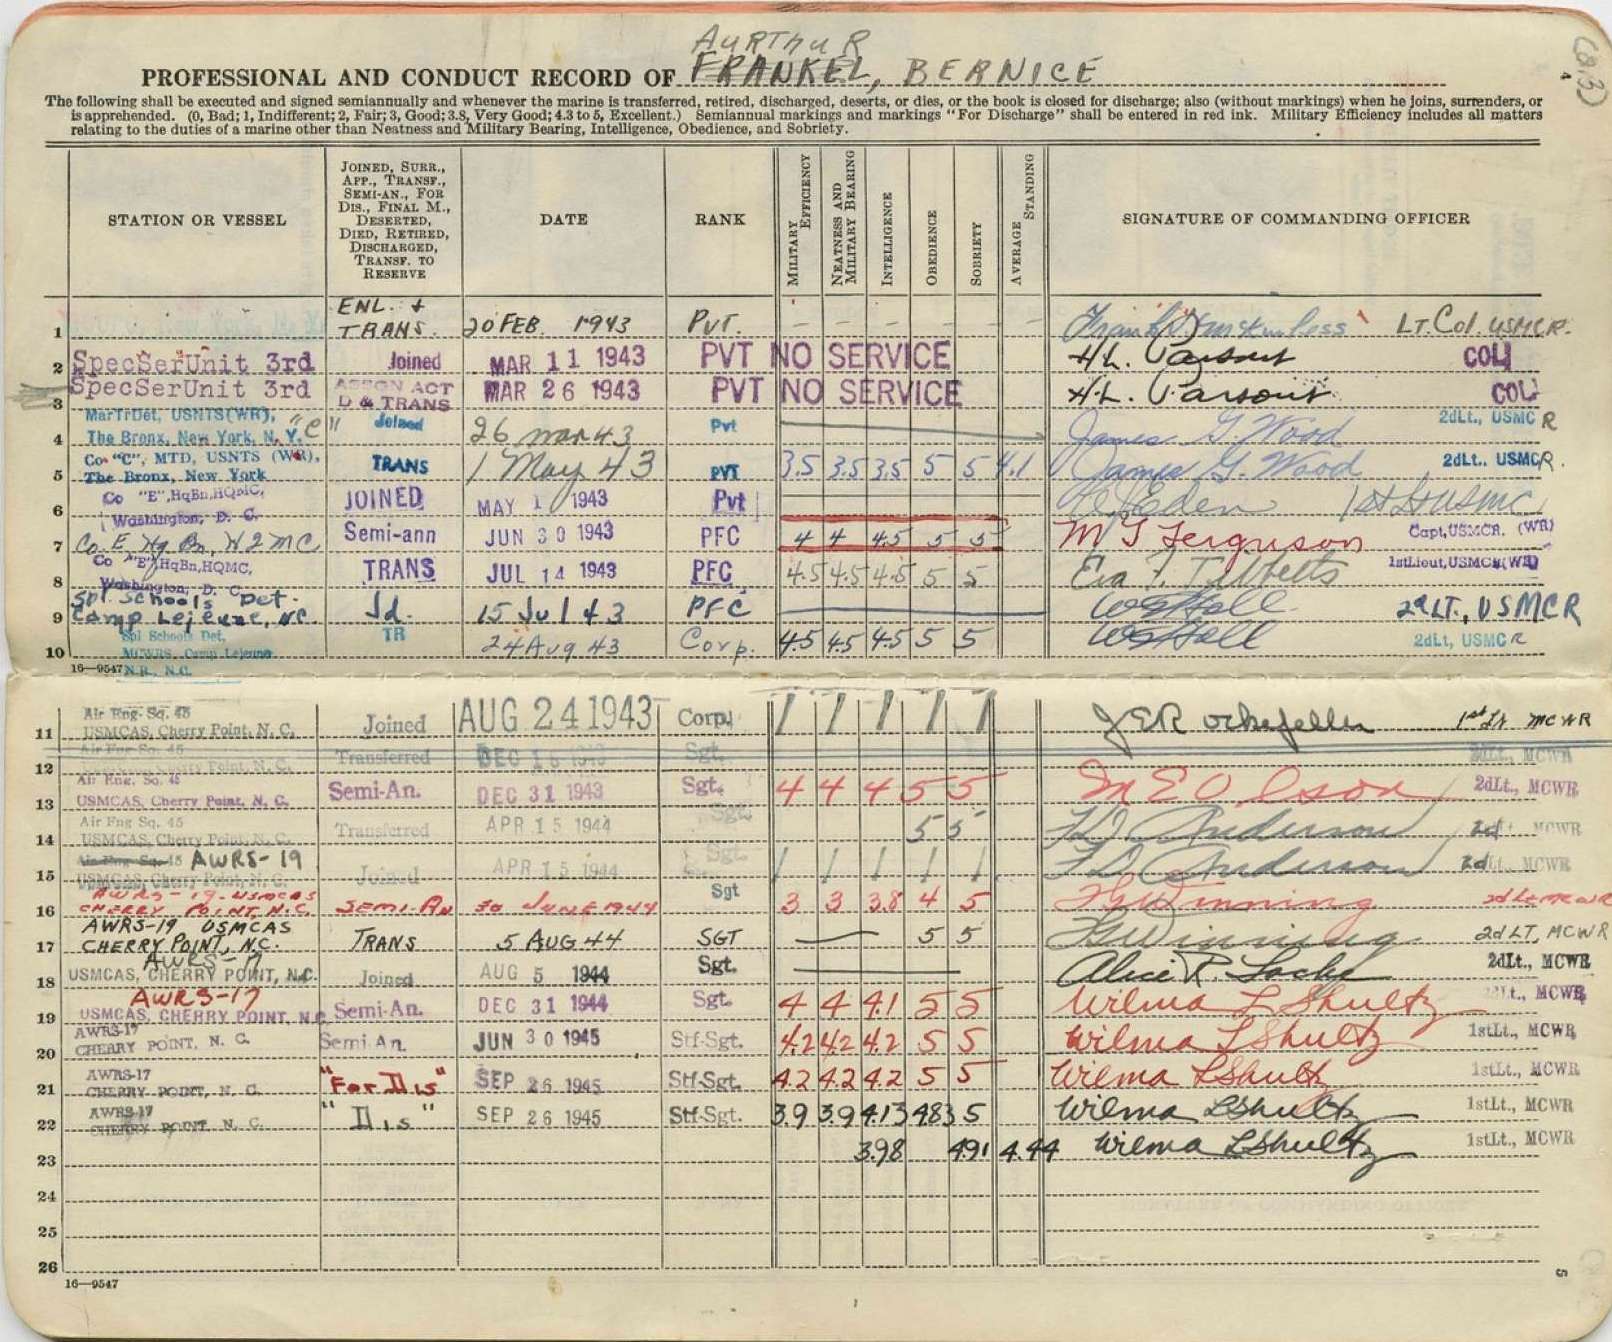 AURTHUR
PROFESSIONAL AND CONDUCT RECORD OF FRANKEL, BERNICE
The following shall be executed and signed semiannually and whenever the marine is transferred, retired, discharged, deserts, or dies, or the book is closed for discharge; also (without markings) when he joins, surrenders, or
is apprehended. (0, Bad; 1, Indifferent; 2, Fair; 3, Good; 3.8, Very Good; 4.3 to 5, Excellent.) Semiannual markings and markings "For Discharge" shall be entered in red ink. Military Efficiency includes all matters
relating to the duties of a marine other than Neatness and Military Bearing, Intelligence, Obedience, and Sobriety.
4
STATION OR VESSEL
JOINED, SURR.,
APP., TRANSF.,
SEMI-AN., FOR
DIS., FINAL M.,
DESERTED,
DIED, RETIRED,
DISCHARGED,
TRANSF. TO
RESERVE
DATE
RANK
MILITARY EFFICIENCY
NEATNESS AND MILITARY BEARING
INTELLIGENCE
OBEDIENCE
SOBRIETY
AVERAGE STANDING
SIGNATURE OF COMMANDING OFFICER
1 ENL. + TRANS. 20 FEB. 1943 PVT. - - - - - - LT. COL. USMCR.
2 SpecSerUnit 3rd Joined MAR 11 1943 PVT NO SERVICE H.L. Parsons COL
3 SpecSerUnit 3rd ASSGN ACT D & TRANS MAR 26 1943 PVT NO SERVICE H.L. Parsons COL
4 MarTrDet, USNTS(WR), "C" The Bronx, New York, N.Y. Joined 26 mar 43 Pvt James G. Wood 2dLt., USMCR
5 Co. "C", MTD, USNTS (WR), The Bronx, New York TRANS 1 May 43 PVT 3.5 3.5 3.5 5 5 4.1 James G. Wood 2dLt., USMCR.
6 Co "E", HqBn, HQMC, Washington, D. C. JOINED MAY 1 1943 Pvt Eden 1st Lt USMC
7 Co. E Hq Bn, HQMC Semi-ann JUN 30 1943 PFC 4 4 4.5 5 5 M G Ferguson Capt, USMCR. (WR)
8 Co "E", HqBn, HQMC, Washington, D. C. TRANS JUL 14 1943 PFC 4.5 4.5 4.5 5 5 Eva F. Tibbetts 1stLieut, USMCR (WR)
9 Spl. Schools Det. Camp Lejeune, N.C. Jd. 15 Jul 43 PFC WGHall 2d LT., USMCR
10 Spl Schools Det, MCWRS, Camp Lejeune N.R., N.C. TR 24 Aug 43 Corp. 4.5 4.5 4.5 5 5 WGHall 2dLt, USMCR
16—9547
11 Air Eng. Sq. 45 USMCAS, Cherry Point, N. C. Joined AUG 24 1943 Corp. / / / / / J E Rockefeller 1st Lt MCWR
12 Air Eng Sq. 45 Transferred DEC 1943 Sgt. 2dLt., MCWR
13 Air Eng. Sq. 45 USMCAS, Cherry Point, N. C. Semi-An. DEC 31 1943 Sgt. 4 4 4 5 5 M E Olson 2dLt., MCWR
14 Air Eng Sq. 45 USMCAS, Cherry Point, N. C. Transferred APR 15 1944 Sgt. 5 5 Anderson 2d Lt., MCWR
15 Air Eng. Sq. 45 AWRS-19 USMCAS, Cherry Point, N. C. Joined APR 15 1944 Sgt. / / / / / Anderson 2d Lt., MCWR
16 AWRS-19 USMCAS CHERRY POINT, N.C. SEMI-AN 30 JUNE 1944 Sgt 3 3 3.8 4 5 Winning 2d Lt MCWR
17 AWRS-19 USMCAS CHERRY POINT, N.C. TRANS 5 AUG 44 SGT 5 5 Winning 2d LT, MCWR
18 AWRS-17 USMCAS, CHERRY POINT, N.C. Joined AUG 5 1944 Sgt. Alice R. 2dLt., MCWR
19 AWRS-17 USMCAS, CHERRY POINT, N.C. Semi-An. DEC 31 1944 Sgt. 4 4 4.1 5 5 Wilma L Shultz Lt., MCWR
20 AWRS-17 CHERRY POINT, N. C. Semi An. JUN 30 1945 Stf-Sgt. 4.2 4.2 4.2 5 5 Wilma L Shultz 1stLt., MCWR
21 AWRS-17 CHERRY POINT, N. C. "For Dis" SEP 26 1945 Stf-Sgt. 4.2 4.2 4.2 5 5 Wilma L Shultz 1stLt., MCWR
22 AWRS-17 CHERRY POINT, N. C. "Dis" SEP 26 1945 Stf-Sgt. 3.9 3.9 4.13 4.83 5 Wilma L Shultz 1stLt., MCWR
23 3.98 4.91 4.44 Wilma L Shultz 1stLt., MCWR
24
25
26
16—9547
5